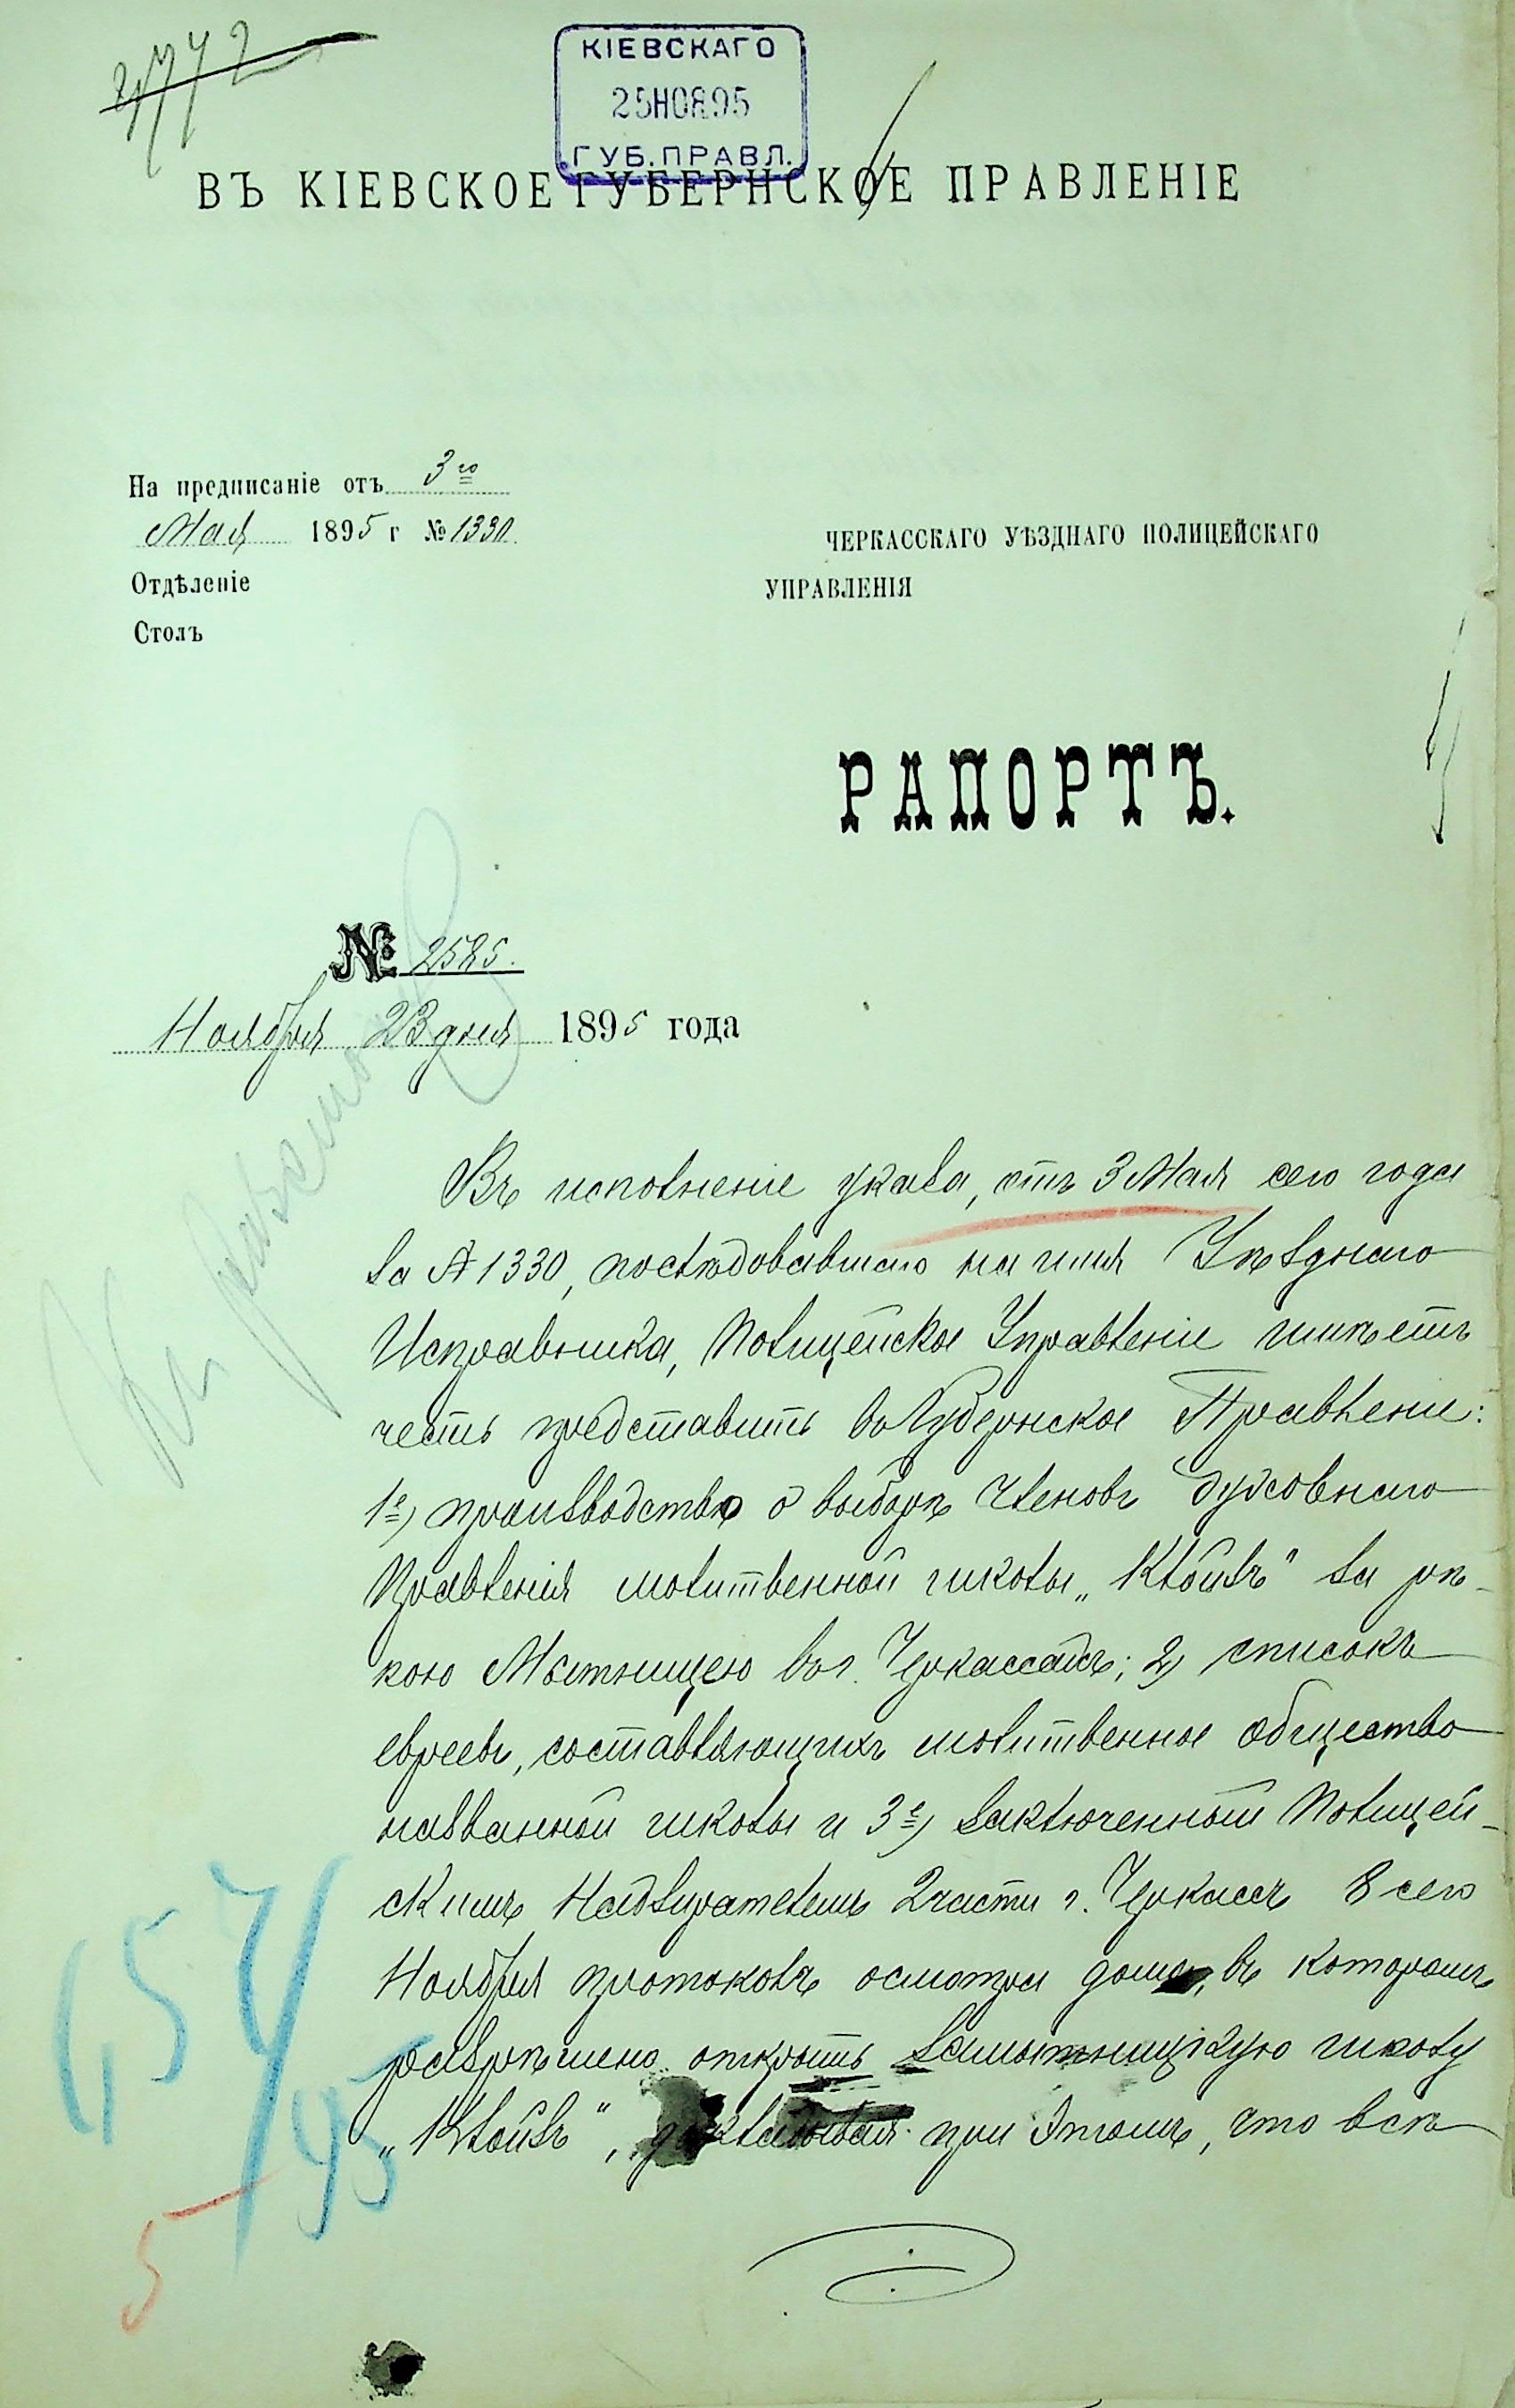 4772
КІЕВСКАГО
25 НОЯ 95
ГУБ. ПРАВЛ.
ВЪ КІЕВСКОЕ ГУБЕРНСКОЕ ПРАВЛЕНІЕ
На предписаніе отъ 3го
Мая 1895 г № 1330.
Отдѣленіе
Столъ
ЧЕРКАССКАГО УѢЗДНАГО ПОЛИЦЕЙСКАГО
УПРАВЛЕНІЯ
РАПОРТЪ.
№ 2585.
Ноября 23 дня 1895 года
Въ исполненіе указа, отъ 3 Мая сего года
за № 1330, послѣдовавшаго на имя Уѣзднаго
Исправника, Полицейское Управленіе имѣетъ
честь представить въ Губернское Правленіе:
1е) производство о выборѣ членовъ духовнаго
Правленія молитвенной школы „Клойзъ" за рѣ-
кою Мытницею въ г. Черкассахъ; 2) списокъ
евреевъ, составляющихъ молитвенное общество
названной школы и 3е) заключенный Полицей-
скимъ Надзирателемъ 2 части г. Черкассъ 8 сего
Ноября протоколъ осмотра дома, въ которомъ
разрѣшено открыть замытницкую школу
„Клойзъ", докладывая при этомъ, что всѣ
154/95
5